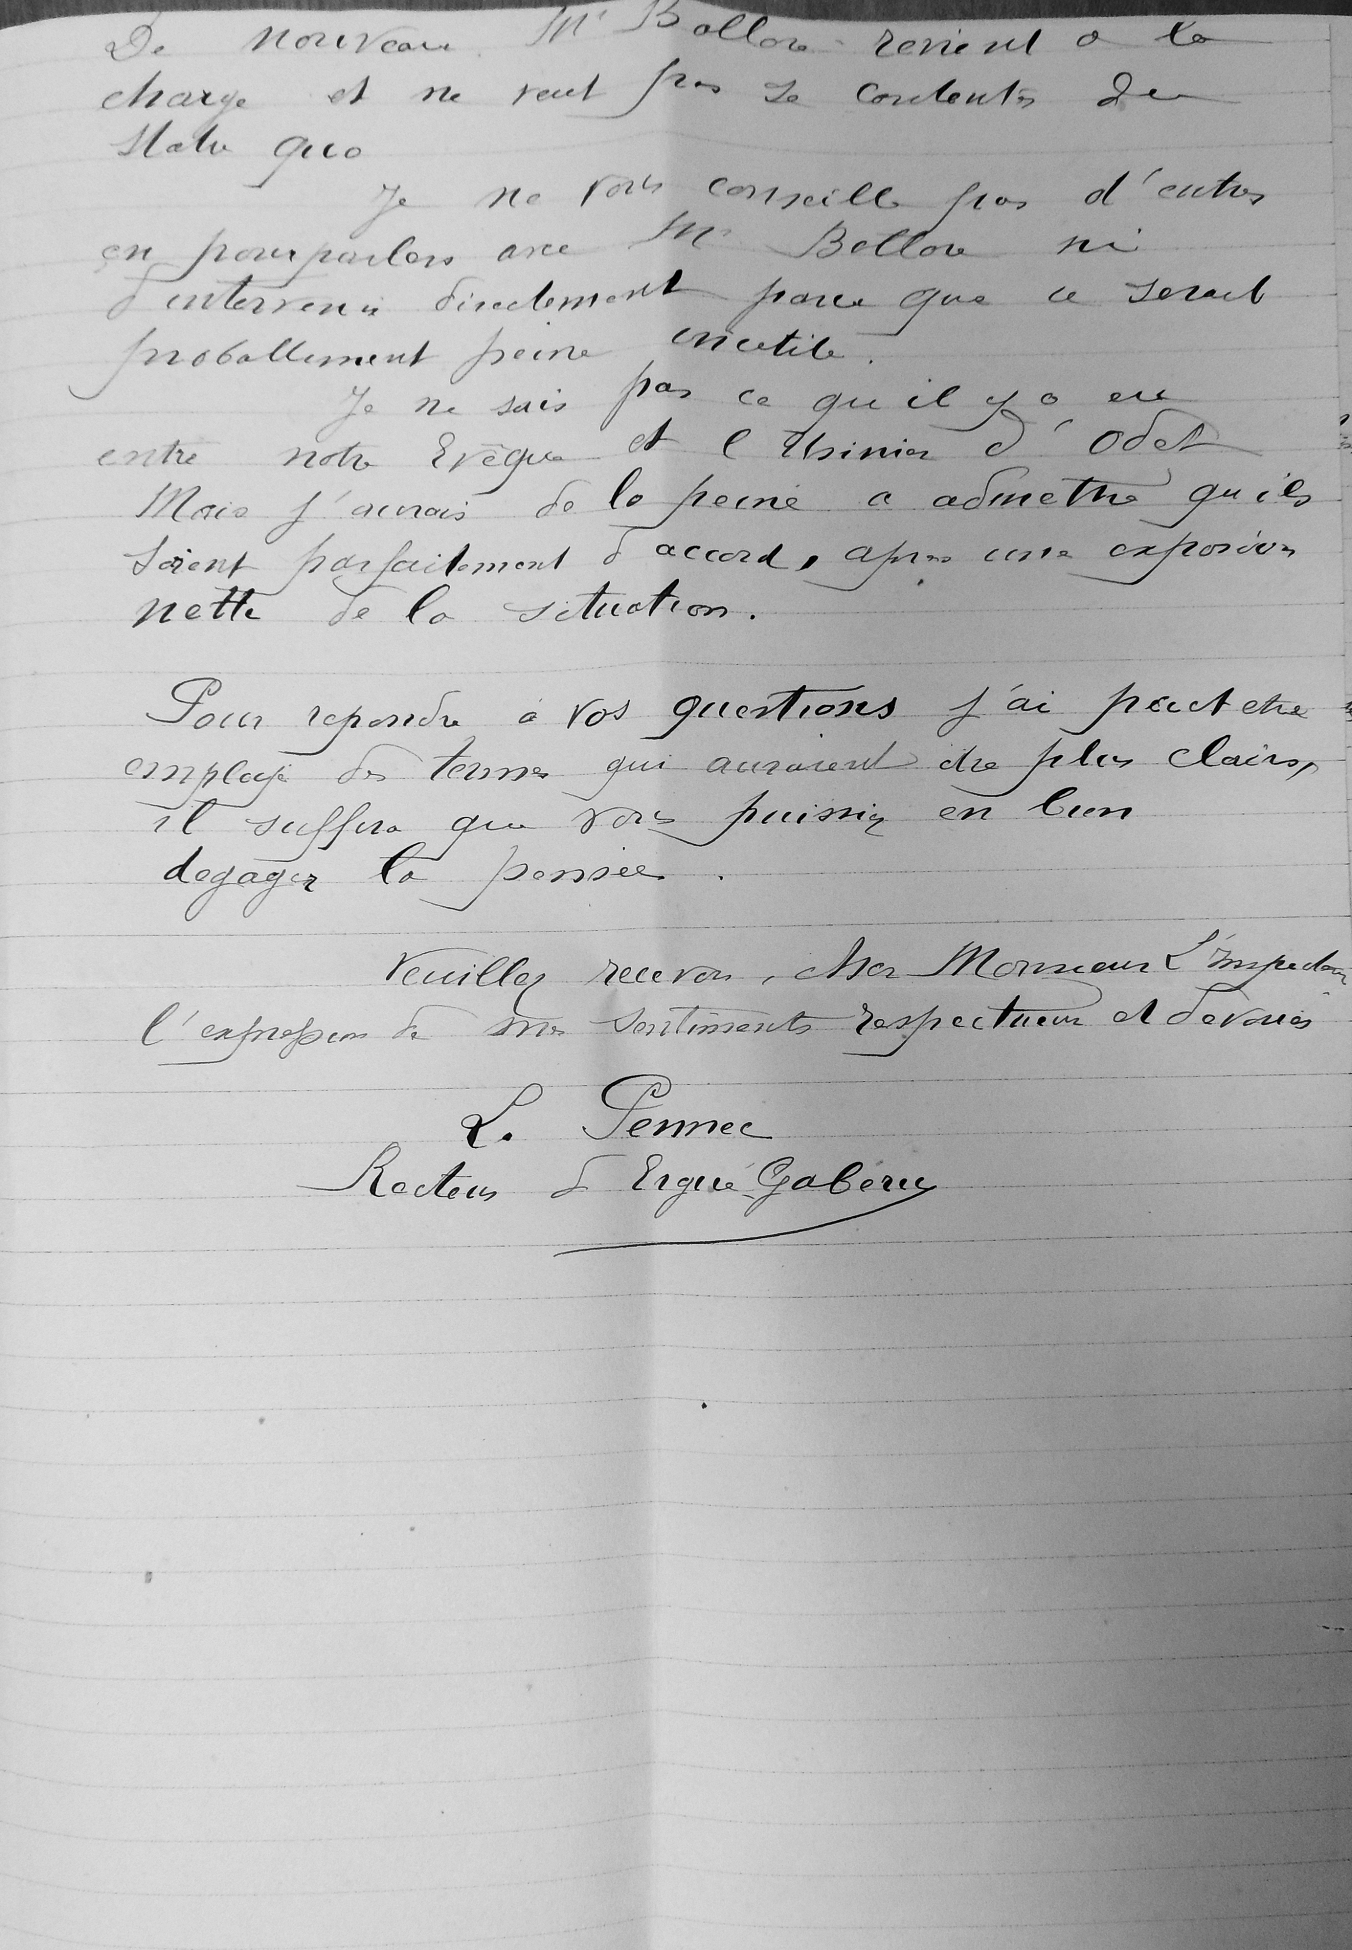 De nouveau Mr Bollore revient a la
charge et ne veut pas se contenter du
statu quo
Je ne vous conseille pas d'entrer
en pourparlers avec Mr Bollore ni
d'intervenir directement parce que ce serait
probablement peine inutile.
Je ne sais pas ce qu'il y a eu
entre notre Evêque et l'Usinier d'Odet
Mais j'aurais de la peine a admettre qu'ils
soient parfaitement d'accord, apres une exposition
nette de la situation.
Pour repondre à vos questions j'ai peut etre
employé des termes qui auraient dû etre plus clairs,
il suffira que vous puissiez en bien
degager la pensée.
Veuillez recevoir, cher Monsieur L'Inspecteur
l'expression de mes sentiments respectueux et devoués
L. Pennec
Recteur d'Ergué-Gabéric